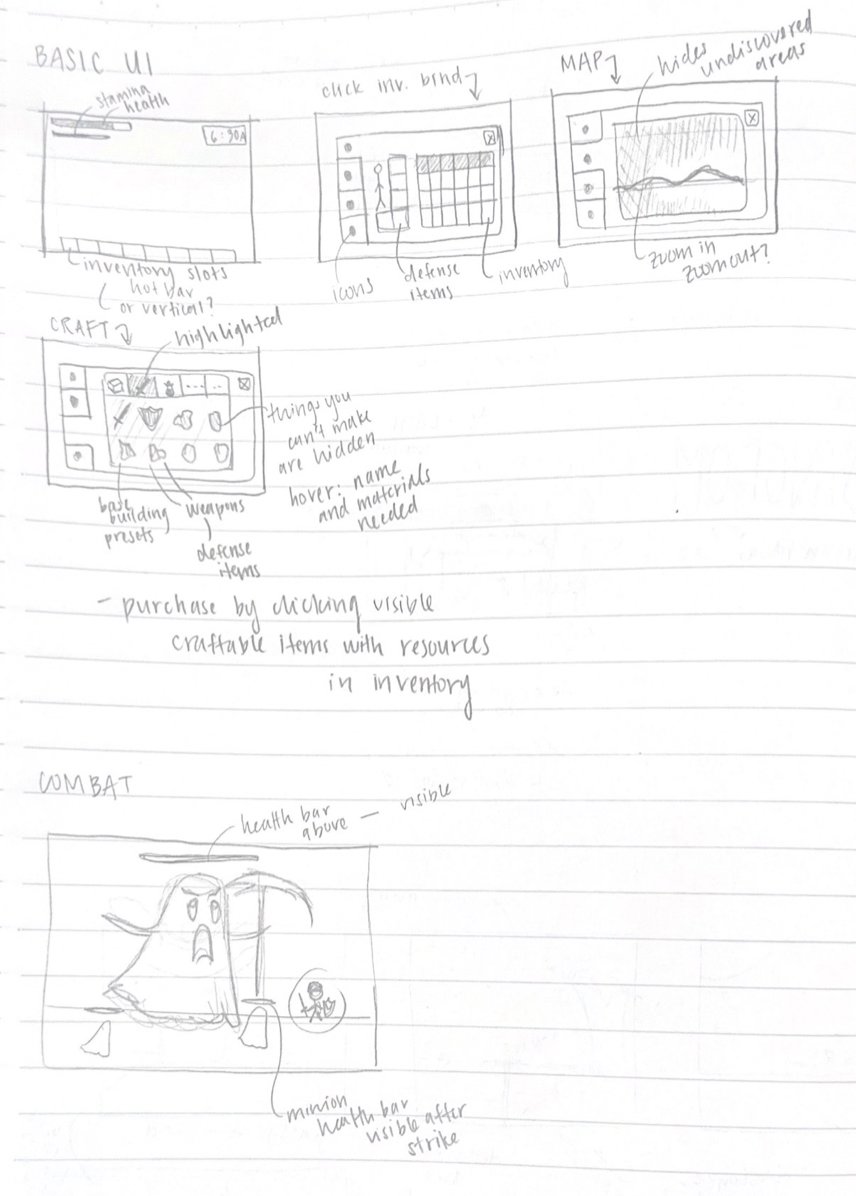 BASIC UI
stamina
health
6:30A
inventory slots
hot bar
or vertical?
click inv. bind
icons
defense
items
inventory
MAP
hides
undiscovered
areas
zoom in
zoom out?
CRAFT
highlighted
things you
can't make
are hidden
hover: name
and materials
needed
base
building
presets
weapons
defense
items
- purchase by clicking visible
craftable items with resources
in inventory
COMBAT
health bar
above - visible
minion
health bar
visible after
strike